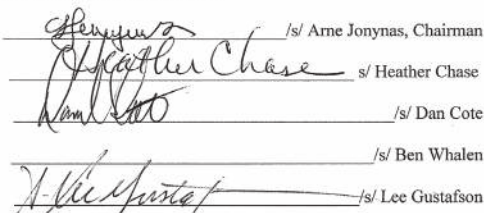 /s/ Arne Jonynas, Chairman
Heather Chase s/ Heather Chase
/s/ Dan Cote
/s/ Ben Whalen
/s/ Lee Gustafson